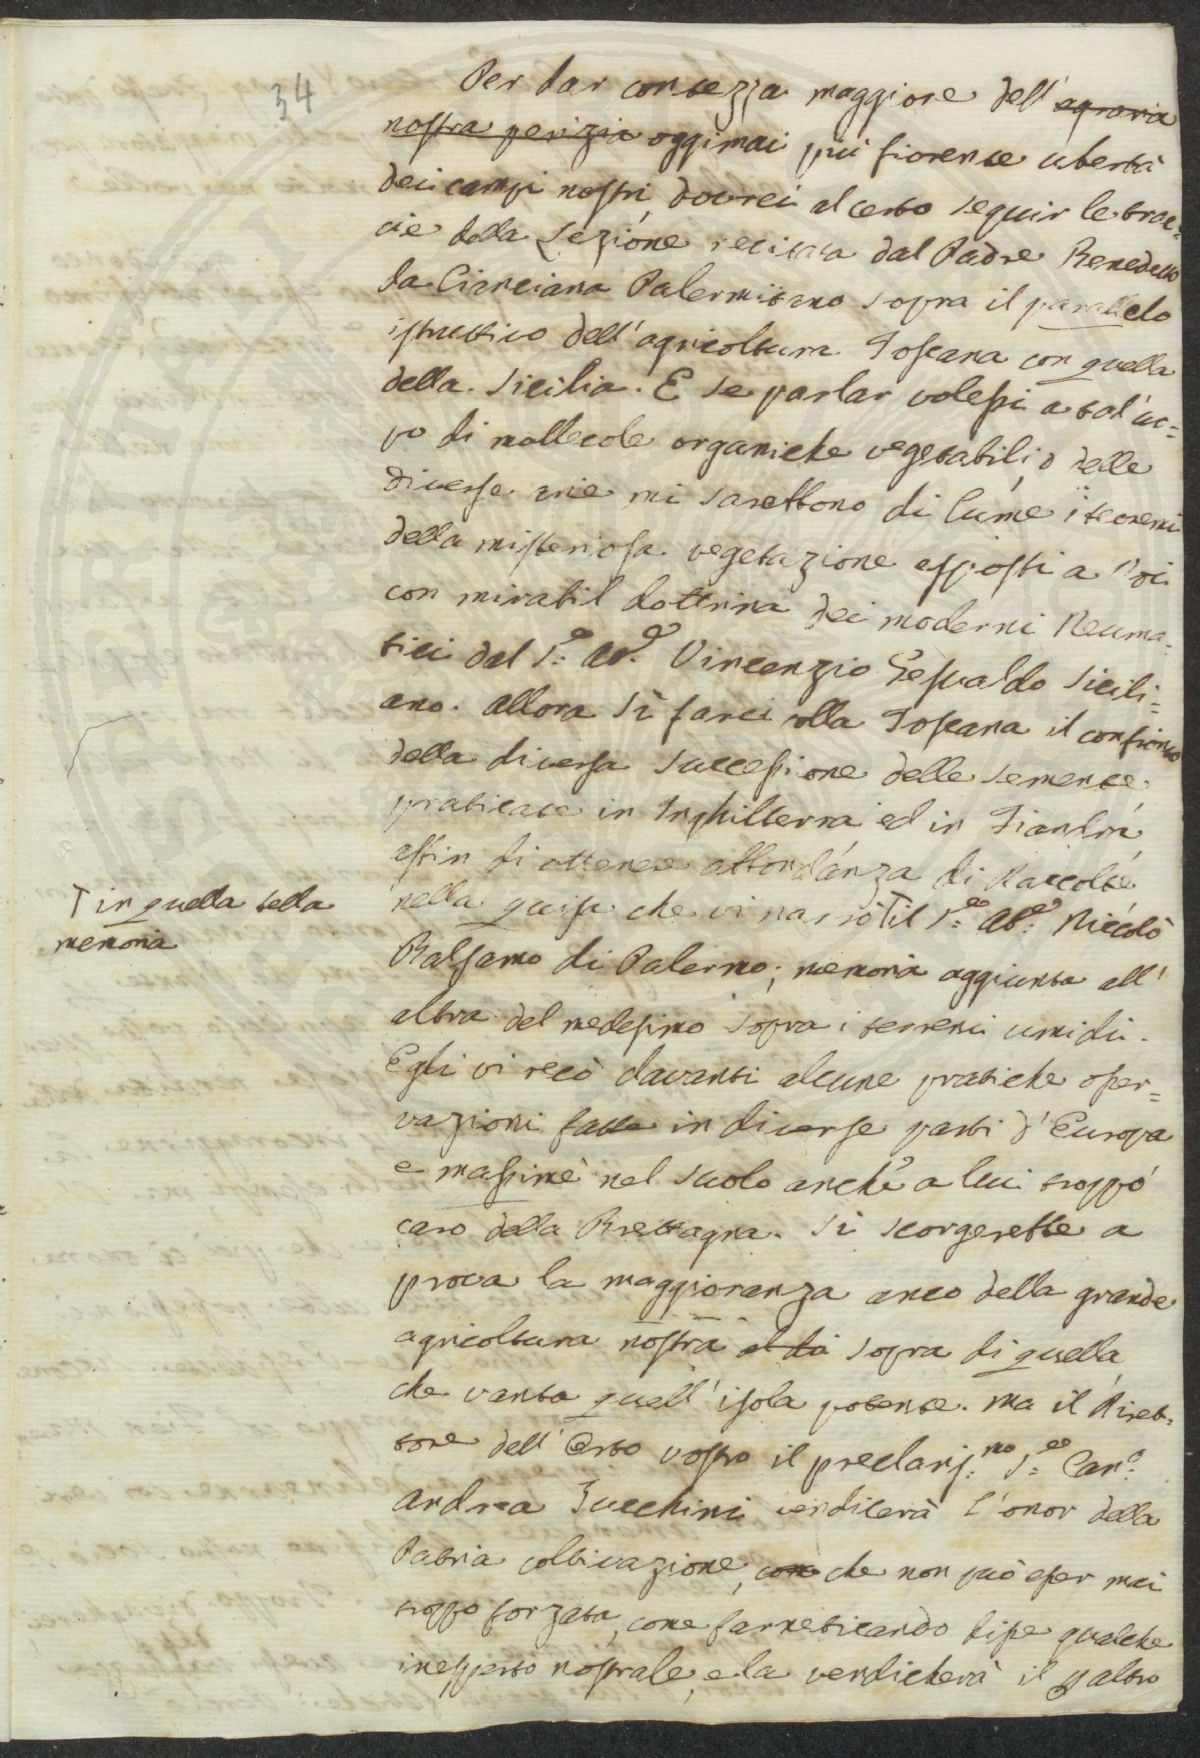 34
Per dar contezza maggiore dell' agraria
nostra perizia oggimai più fiorente ubertà
dei campi nostri, dovrei al certo seguir le trac=
cie della Lezione recitata dal Padre Benedetto
da Cianciana Palermitano sopra il parallelo
istruttivo dell' agricoltura Toscana con quella
della Sicilia. E se parlar volessi a tal'uo=
po di mollecole organiche vegetabili, o delle
diverse arie mi sarebbono di lume i teoremi
della misteriosa vegetazione esposti a Voi
con mirabil dottrina dei moderni Neuma=
tici dal S.e Av.e Vincenzio Gesualdo Sicili=
ano. Allora sì farei colla Toscana il confronto
della diversa successione delle semente
praticate in Inghilterra ed in Fiandra,
affin di ottenere abbondanza di Raccolte
nella guisa che vi narrò T il S.e Ab.e Niccolò
T in quella bella
memoria
Balsamo di Palermo; memoria aggiunta all'
altra del medesimo sopra i terreni umidi.
Egli vi recò davanti alcune pratiche osser=
vazioni fatte in diverse parti d'Europa
e massime nel suolo anche a lui troppo
caro della Brettagna. Si scorgerebbe a
prova la maggioranza anco della grande
agricoltura nostra al di sopra di quella
che vanta quell'isola potente. Ma il Diret=
tore dell' Orto vostro il preclaris.mo S.e Can.o
Andrea Zucchini vendicerà l'onor della
Patria coltivazione, che non può esser mai
troppo forzata, come farneticando disse qualche
inesperto nostrale, e la vendicherà il altro